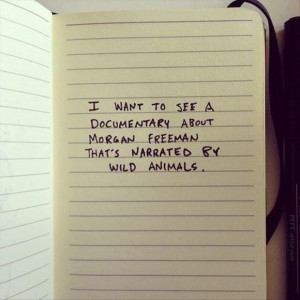 I WANT TO SEE A
DOCUMENTARY ABOUT
MORGAN FREEMAN
THAT'S NARRATED BY
WILD ANIMALS.